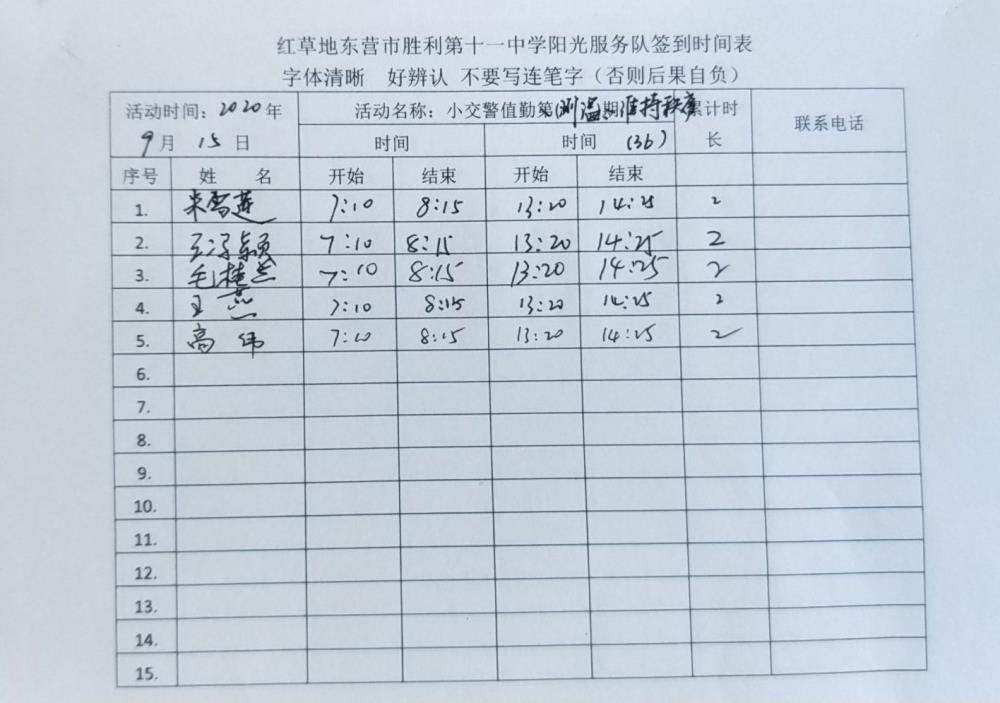 红草地东营市胜利第十一中学阳光服务队签到时间表
字体清晰 好辨认 不要写连笔字（否则后果自负）
活动时间：2020年 活动名称：小交警值勤第（测温、期）维持秩序 累计时 联系电话
9月 15日 时间 时间 (36) 长
序号 姓 名 开始 结束 开始 结束
1. 朱雪莲 7:10 8:15 13:20 14:25 2
2. 7:10 8:15 13:20 14:25 2
3. 毛桂兰 7:10 8:15 13:20 14:25 2
4. 王燕 7:10 8:15 13:20 14:25 2
5. 高纬 7:10 8:15 13:20 14:25 2
6.
7.
8.
9.
10.
11.
12.
13.
14.
15.